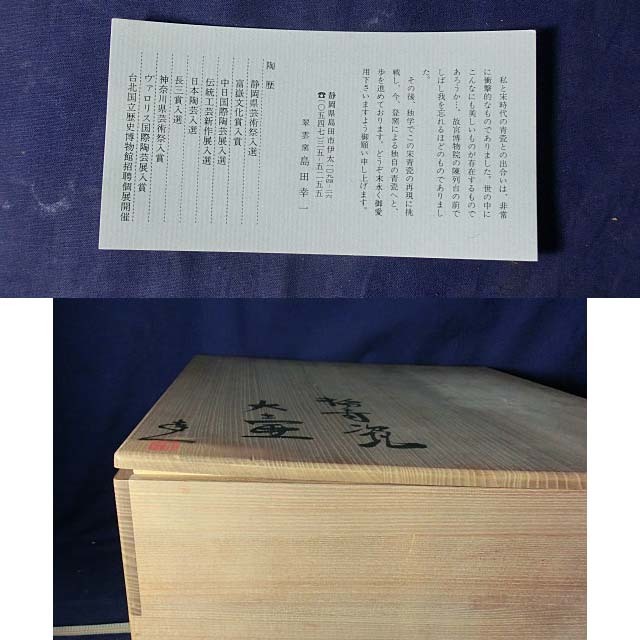 私と宋時代の青瓷との出合いは、非常
に衝撃的なものでありました。世の中に
こんなにも美しいものが存在するもので
あろうか…。故宮博物院の陳列台の前で
しばし我を忘れるほどのものでありまし
た。
その後、独学でこの宋青瓷の再現に挑
戦し、今、登窯による独自の青瓷へと、
歩を進めております。どうぞ末永く御愛
用下さいますよう御願い申し上げます。
静岡県島田市伊太一〇九四-二六
☎〇五四七-三五-五二五五
翠雲窯 島田幸一
陶歴
静岡県芸術祭入選
富嶽文化賞入賞
中日国際陶芸展入選
伝統工芸新作展入選
日本陶芸入選
長三賞入選
神奈川県芸術祭入賞
ヴァロリス国際陶芸展入賞
台北国立歴史博物館招聘個展開催
青瓷
大壷
幸一